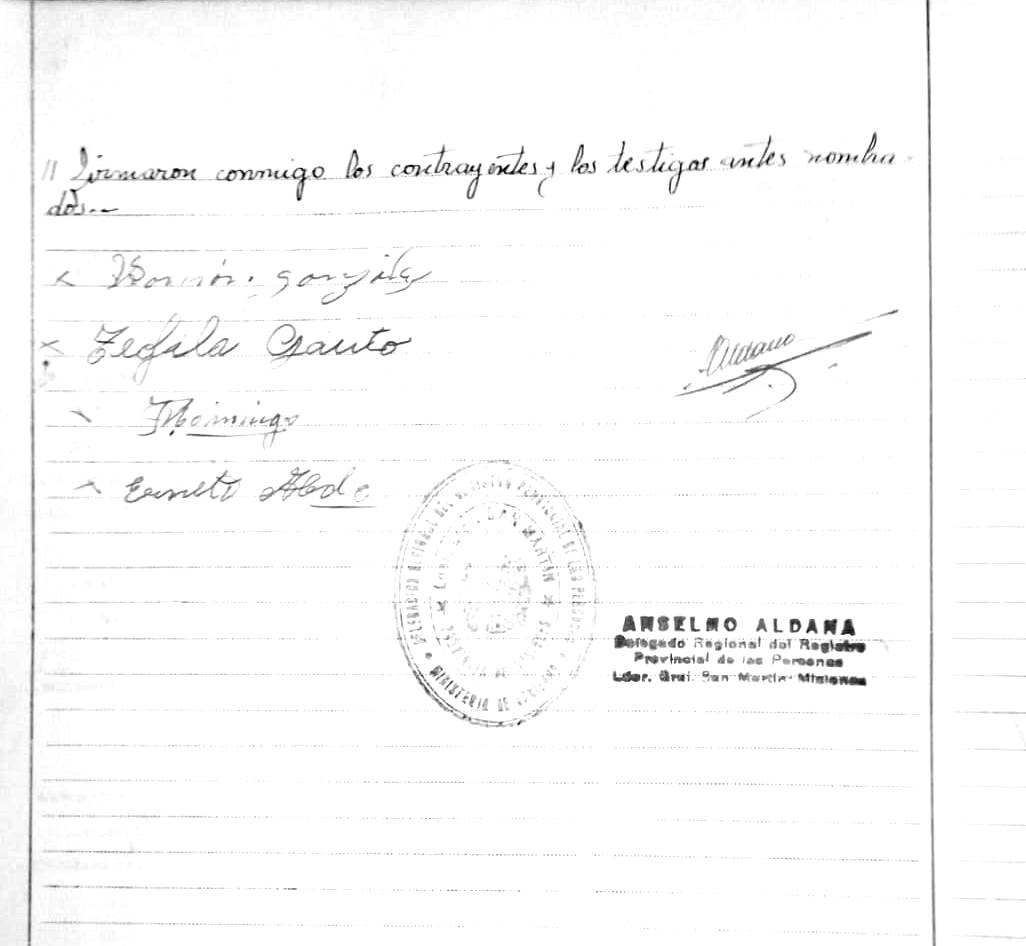 // Firmaron conmigo los contrayentes y los testigos antes nombra-
dos.--
x Ramón González
x Teófila Gauto
x Domingo
x Ernesto
Aldana
DELEGACION REGIONAL DEL REGISTRO PROVINCIAL DE LAS PERSONAS
SAN MARTIN
MINISTERIO DE GOBIERNO
ANSELMO ALDANA
Delegado Regional del Registro
Provincial de las Personas
Lder. Gral. San Martin-Misiones